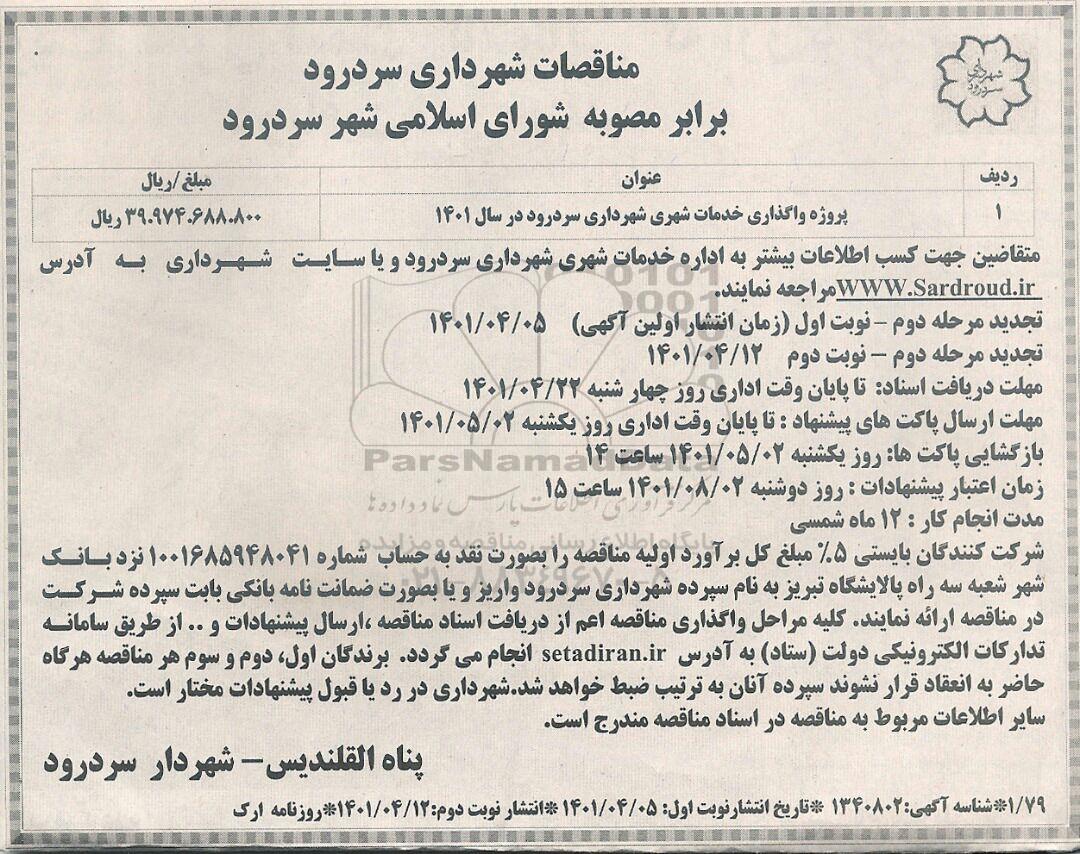 شهرداری
سردرود
مناقصات شهرداری سردرود
برابر مصوبه شورای اسلامی شهر سردرود
ردیف عنوان مبلغ/ریال
۱ پروژه واگذاری خدمات شهری شهرداری سردرود در سال ۱۴۰۱ ۳۹.۹۷۴.۶۸۸.۸۰۰ ریال
متقاضین جهت کسب اطلاعات بیشتر به اداره خدمات شهری شهرداری سردرود و یا سایت شهرداری به آدرس
WWW.Sardroud.ir مراجعه نمایند.
تجدید مرحله دوم – نوبت اول (زمان انتشار اولین آگهی) ۱۴۰۱/۰۴/۰۵
تجدید مرحله دوم – نوبت دوم ۱۴۰۱/۰۴/۱۲
مهلت دریافت اسناد: تا پایان وقت اداری روز چهار شنبه ۱۴۰۱/۰۴/۲۲
مهلت ارسال پاکت های پیشنهاد : تا پایان وقت اداری روز یکشنبه ۱۴۰۱/۰۵/۰۲
بازگشایی پاکت ها: روز یکشنبه ۱۴۰۱/۰۵/۰۲ ساعت ۱۴
ParsNamadData
زمان اعتبار پیشنهادات : روز دوشنبه ۱۴۰۱/۰۸/۰۲ ساعت ۱۵
مرکز فرآوری اطلاعات پارس نماد داده ها
مدت انجام کار : ۱۲ ماه شمسی
پایگاه اطلاع رسانی مناقصه و مزایده
شرکت کنندگان بایستی ۵٪ مبلغ کل برآورد اولیه مناقصه را بصورت نقد به حساب شماره ۱۰۰۱۶۸۵۹۴۸۰۴۱ نزد بانک
۰۲۱-۸۸۳۴۹۶۷۰-۵
شهر شعبه سه راه پالایشگاه تبریز به نام سپرده شهرداری سردرود واریز و یا بصورت ضمانت نامه بانکی بابت سپرده شرکت
در مناقصه ارائه نمایند. کلیه مراحل واگذاری مناقصه اعم از دریافت اسناد مناقصه ،ارسال پیشنهادات و .. از طریق سامانه
تدارکات الکترونیکی دولت (ستاد) به آدرس setadiran.ir انجام می گردد. برندگان اول، دوم و سوم هر مناقصه هرگاه
حاضر به انعقاد قرار نشوند سپرده آنان به ترتیب ضبط خواهد شد.شهرداری در رد یا قبول پیشنهادات مختار است.
سایر اطلاعات مربوط به مناقصه در اسناد مناقصه مندرج است.
پناه القلندیس– شهردار سردرود
۱/۷۹*شناسه آگهی:۱۳۴۰۸۰۲ *تاریخ انتشارنوبت اول: ۱۴۰۱/۰۴/۰۵ *انتشار نوبت دوم:۱۴۰۱/۰۴/۱۲*روزنامه ارک